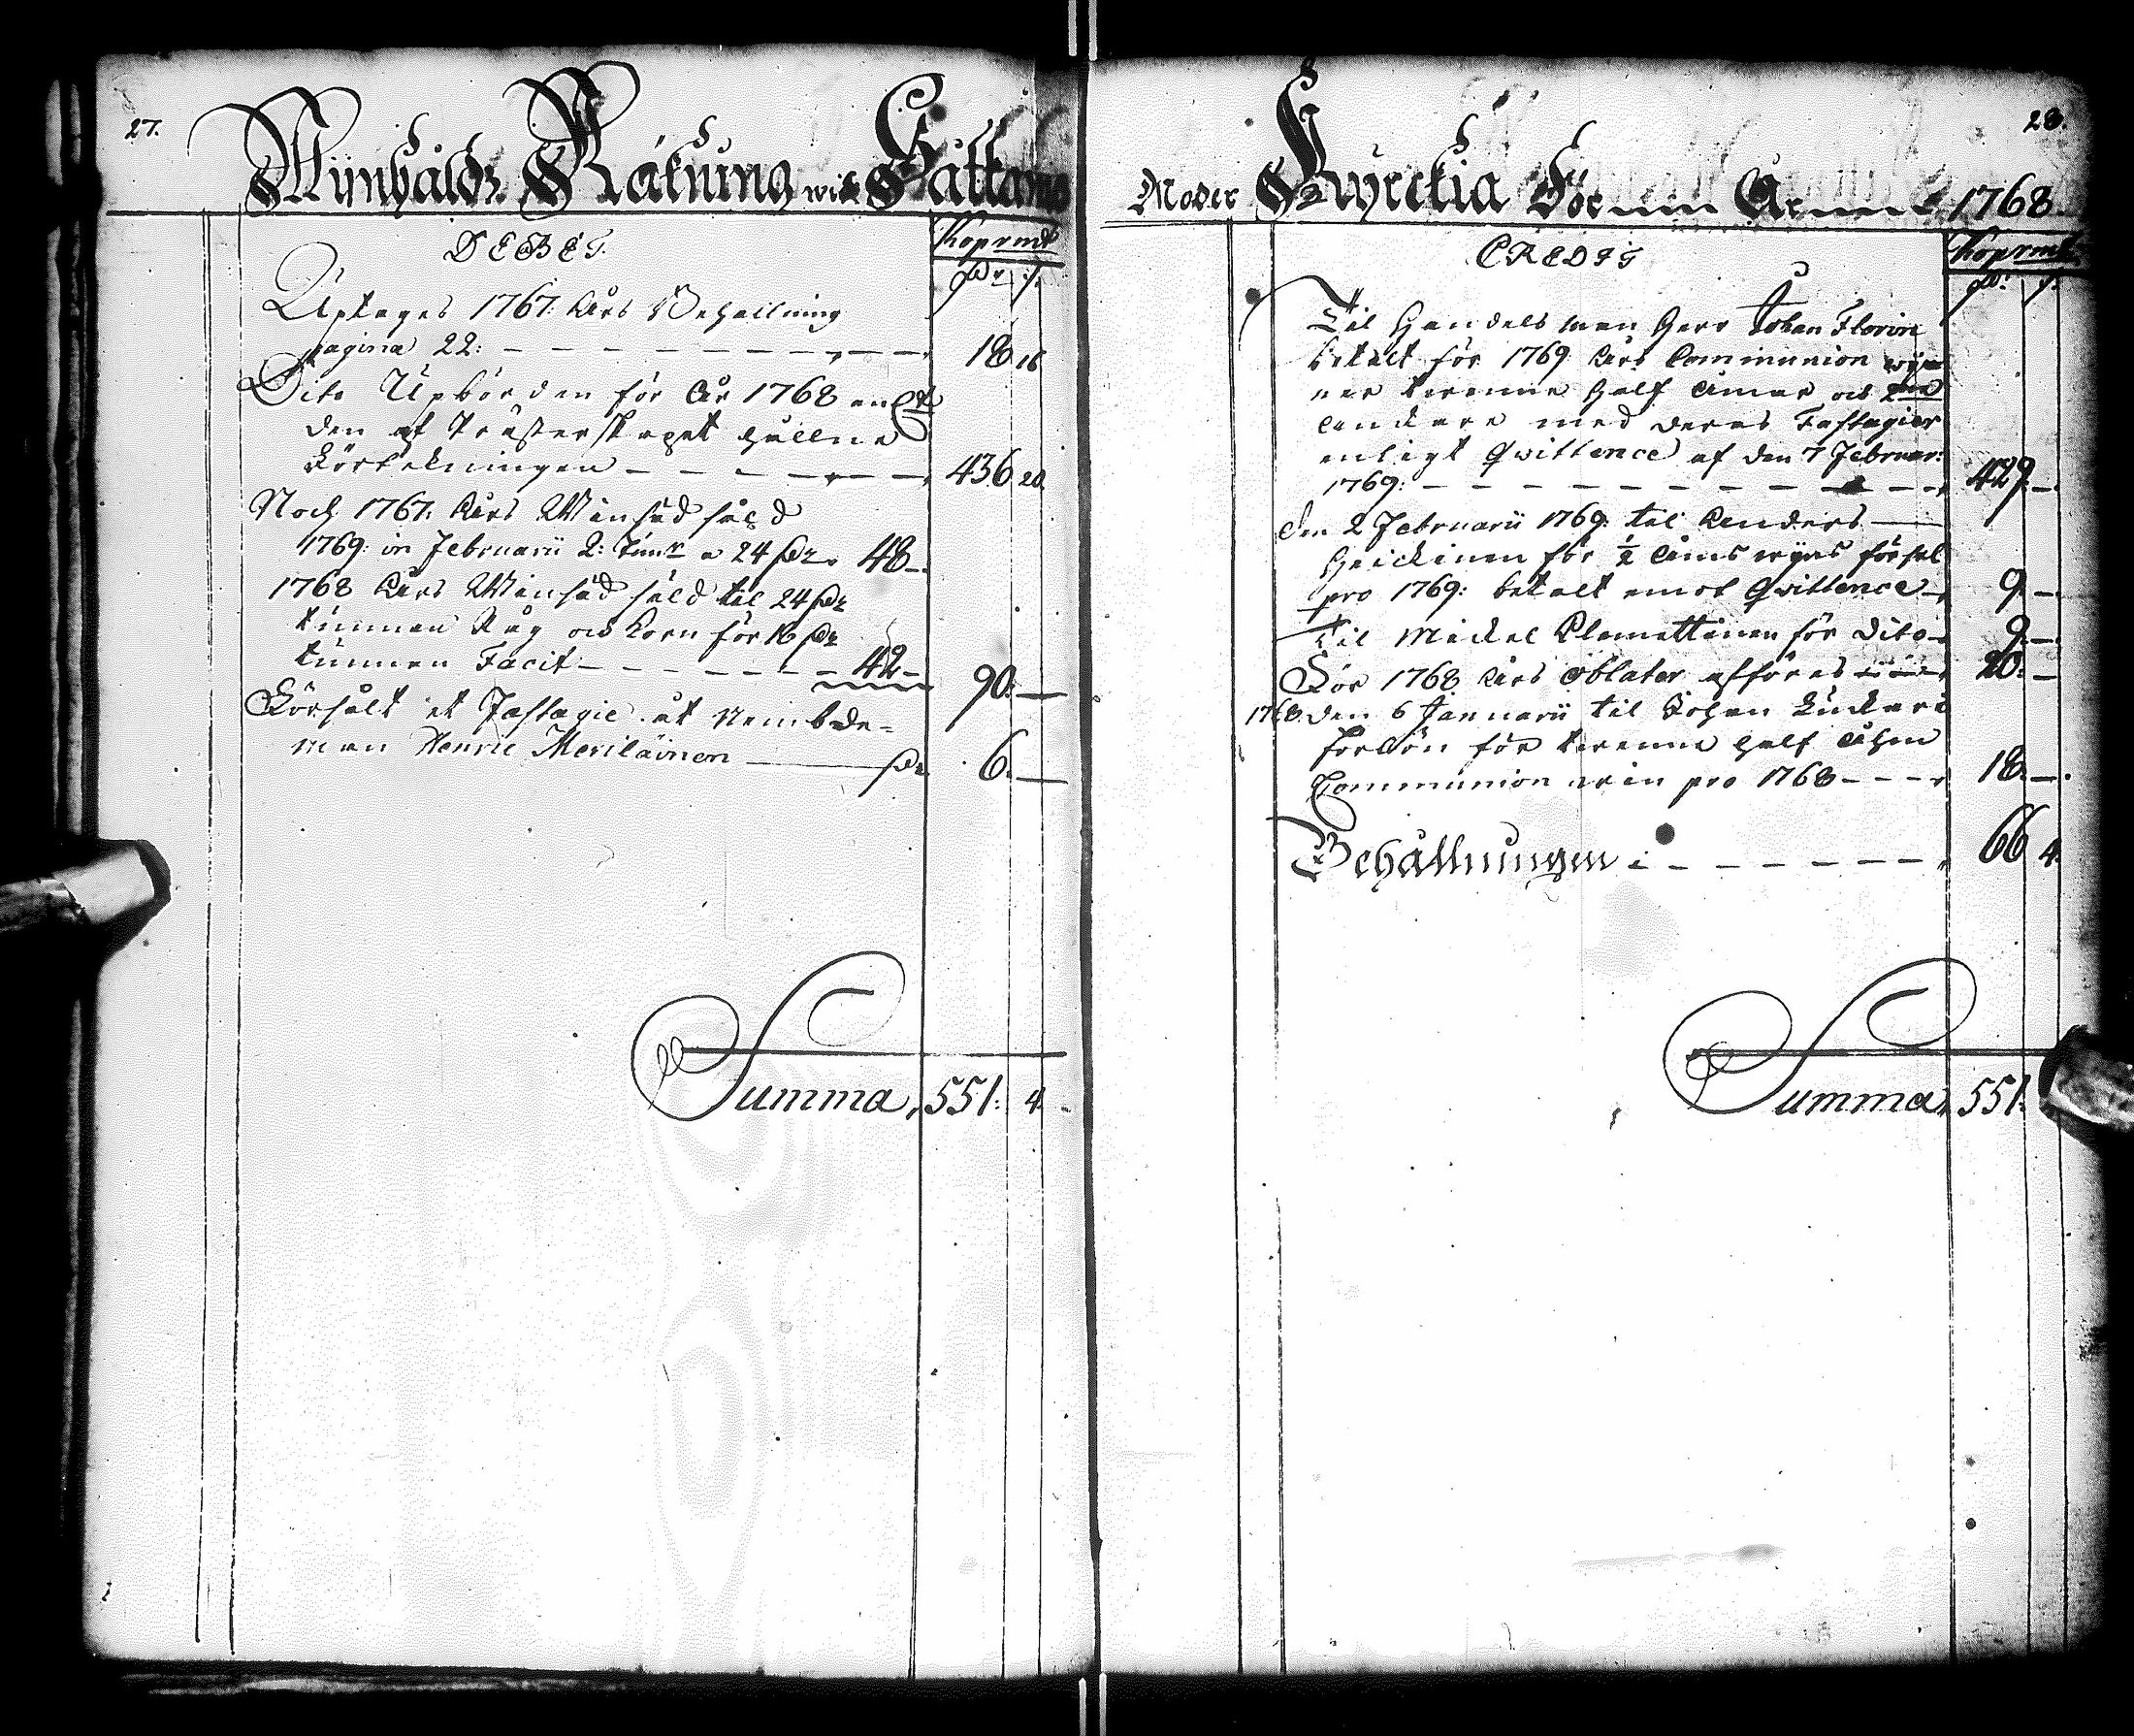 27.
Wijnhålds Räkning wid Såtkamo
DEBET.
Koprmt
Dr s.
Uptages 1767: Års Behållning
pagina 22: 18 16
Dito Upbörden för År 1768 enl.
den af Prästerskapet hållne
Förtekningen 436 20.
Noch 1767: Års Winsäd såld
1769: in Februarii 2: Tunr a 24 Dr. 48-.
1768 Års Winsäd såld til 24 Dr
tunnan Råg och Korn för 16 Dr
tunnan Facit 42- 90:
Försålt et Fastagie åt Nembde-
man Henric Meriläinen Dr 6.
Summa, 551: 4.
28.
Moder Kyrckia För Året 1768
CREDIT
Koprmt
Dr s.
Til Handelsman Herr Johan Florin
betalt för 1769 Års Communion wijn
ner tvenne half Åmar och
ankare med deras Fastagier
enligt Qvittence af den 7 Februar:
1769: 429.
den 2 Februarii 1769: til Anders
Heickinen för ½ Åms wyns försel
pro 1769: betalt emot Qvittence 9.
Til Mickel Klemettinen för Dito 9.
För 1768 Års Oblater afföres 20:
1768. den 6 Januarii til Johan
Forlön för tvenne half Åhm
Communion win pro 1768 18.
Behållningen 66 4.
Summa, 551: